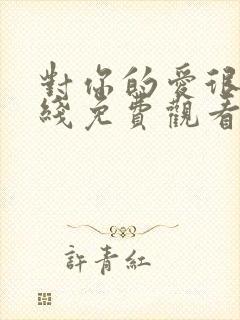 對你的愛很
綫免費觀看
許青紅